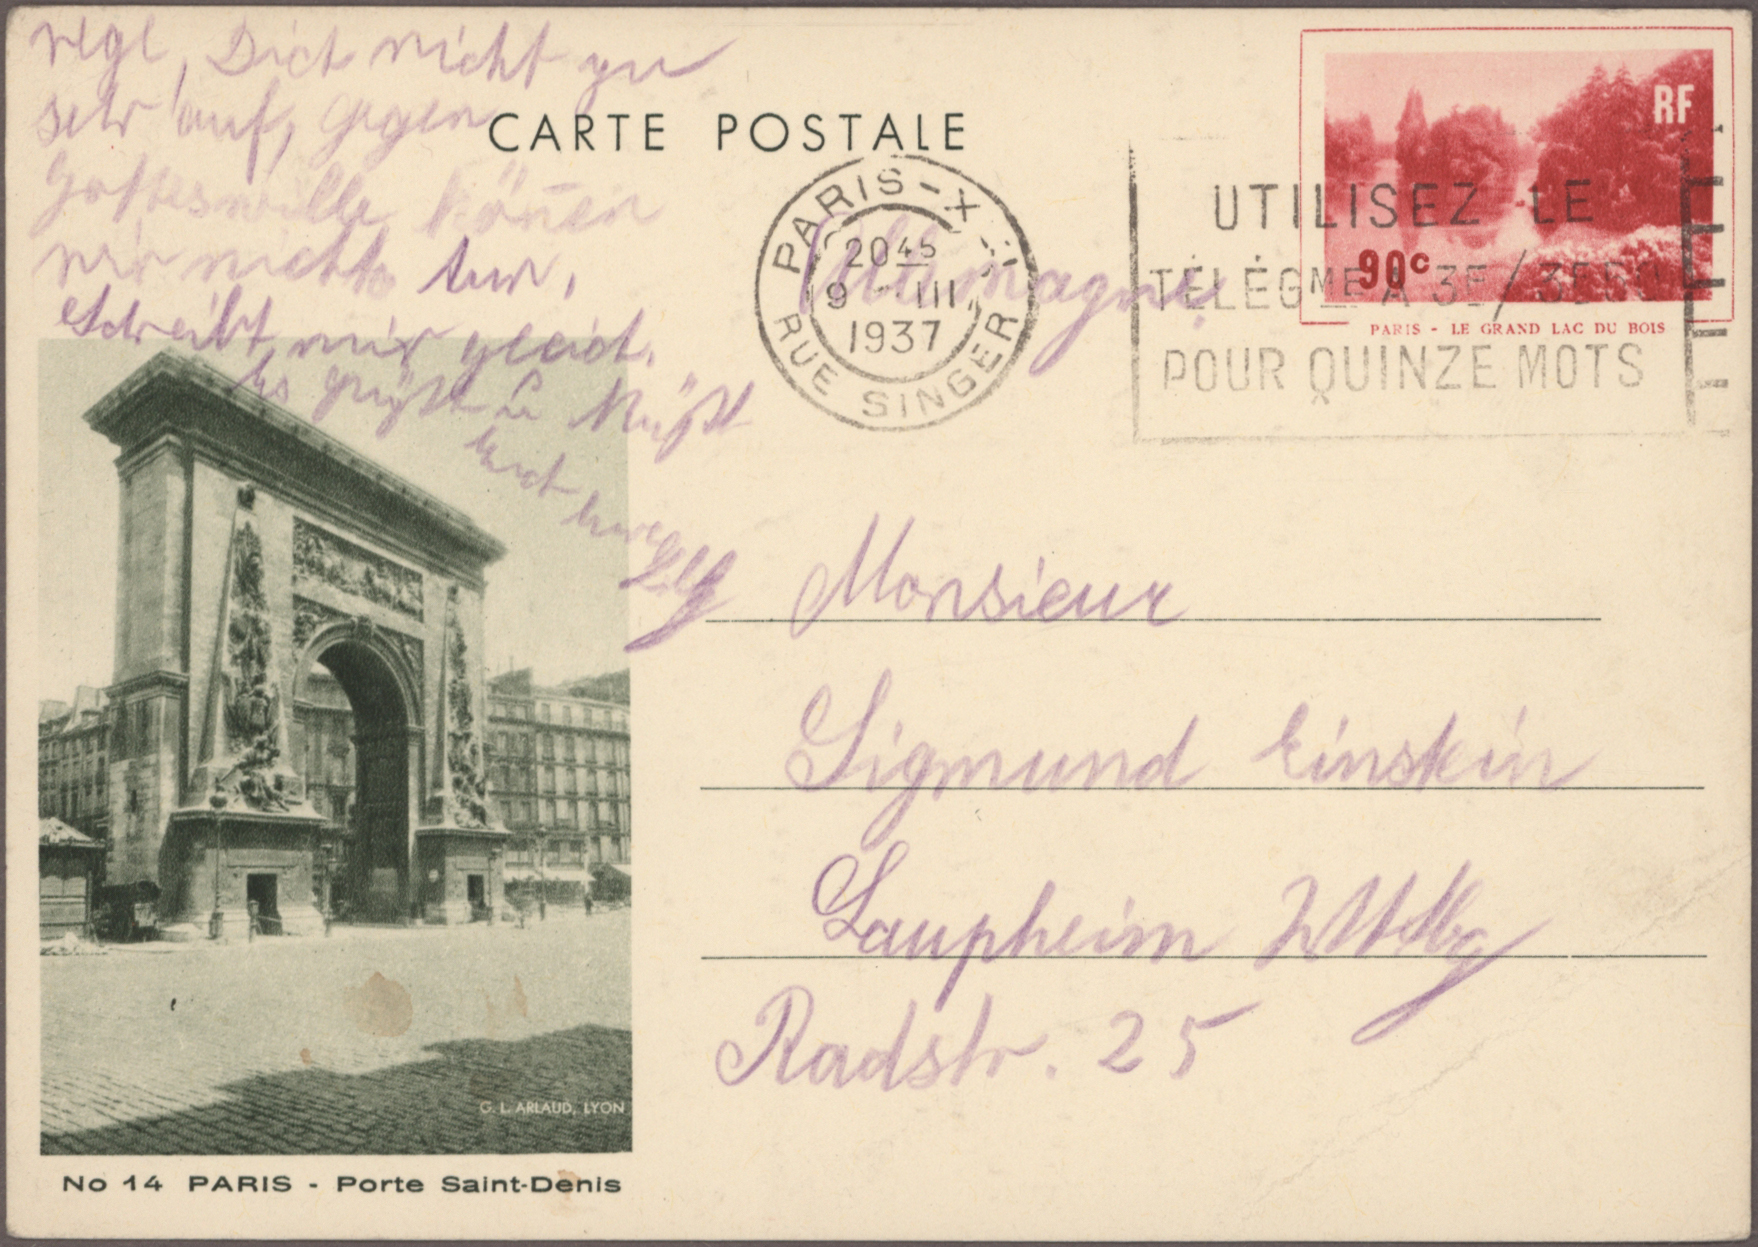 rege, Dich nicht zu
sehr auf, gegen
Gotteswille könen
wir nichts tun,
schreibt mir gleich.
Es grüßt u küßt
Euch
CARTE POSTALE
RF
90c
PARIS - LE GRAND LAC DU BOIS
PARIS-X
2045
9 - III
1937
RUE SINGER
UTILISEZ LE
TÉLÉGME A 3E/3ERO
POUR QUINZE MOTS
Allemagne
Monsieur
Sigmund Einstein
Laupheim Wttbg
Radstr. 25
G. L. ARLAUD, LYON
No 14 PARIS - Porte Saint-Denis